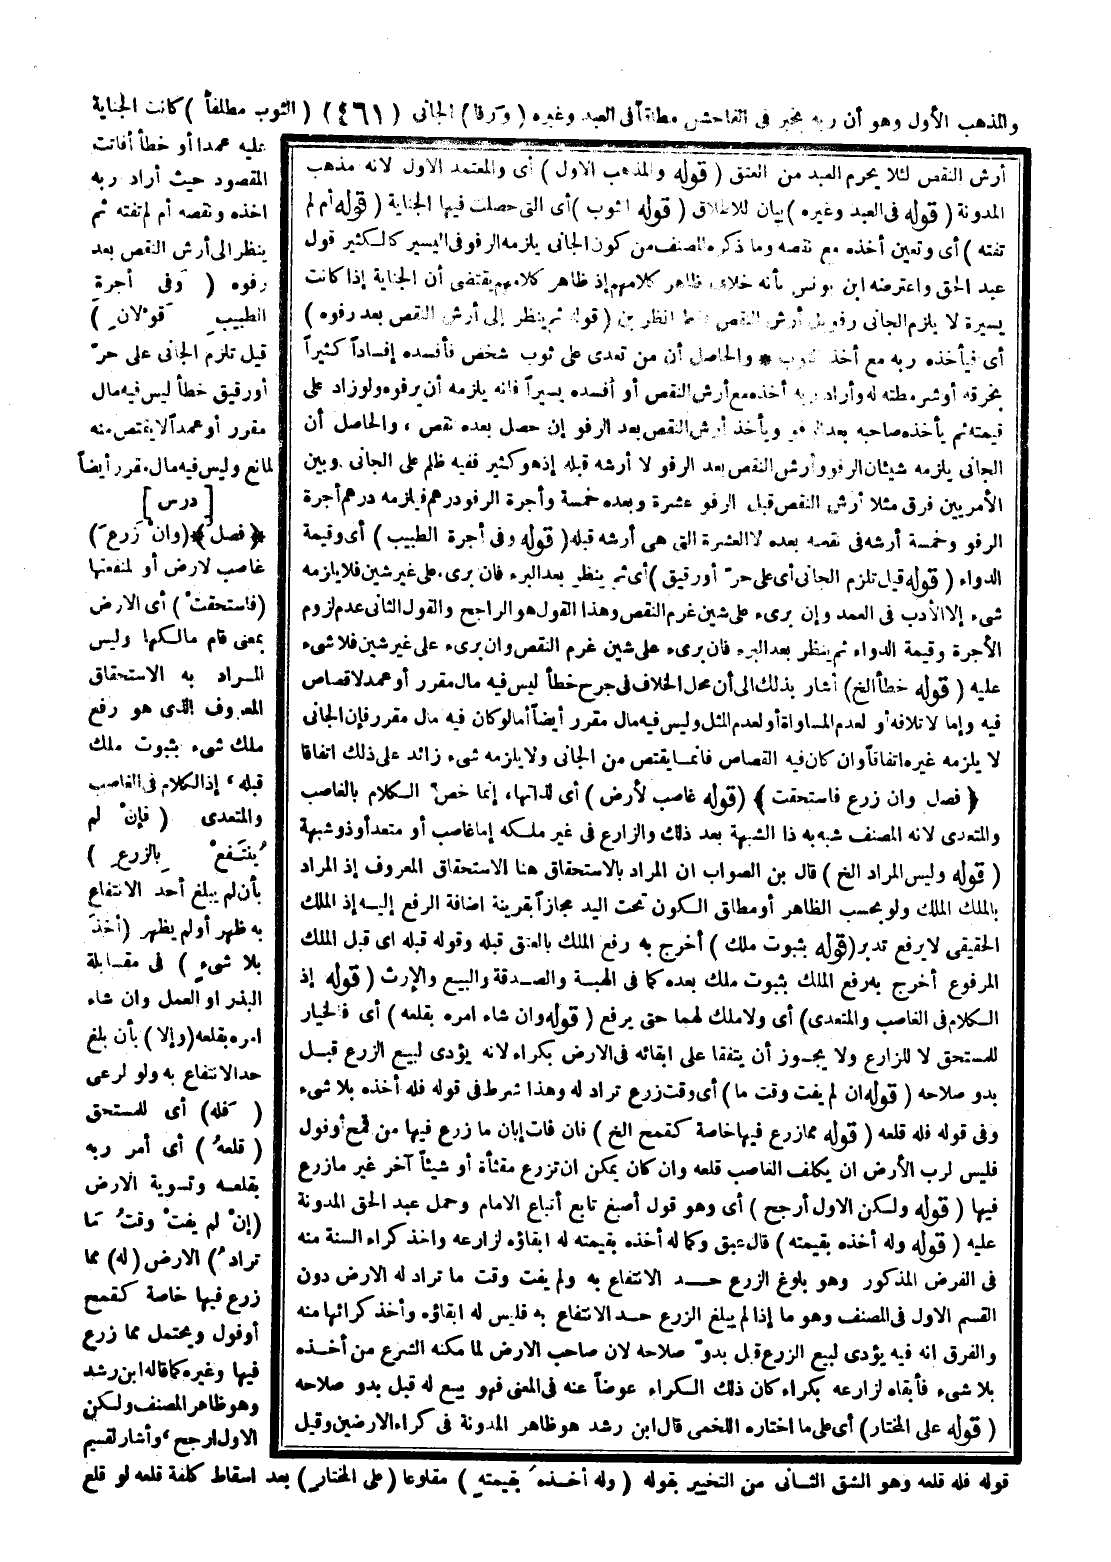 والمذهب الأول وهو أن ربه يخير فى الفاحش مطلقاً فى العبد وغيره ( ورفا ) الجانى ( ٤٦١ ) ( الثوب مطلقاً ) كانت الجناية
عليه عمدا أو خطأ أفاتت
المقصود حيث أراد ربه
اخذه ونقصه أم لم تفته ثم
ينظر الى أرش النقص بعد
رفوه ( وَفى أجرةِ
الطبيبِ قَوْلان )
قيل تلزم الجانى على حرّ
أو رقيق خطأ ليس فيه مال
مقرر أو عمداً لا يقتص منه
لمانع وليس فيه مال مقرر أيضاً
[ درس ]
﴿ فصل ﴾ ( وان ْ زَرع َ )
غاصب لارض أو لمنفعتها
( فاستحقت ْ ) أى الارض
بمعنى قام مالكها وليس
المراد به الاستحقاق
المعروف الذى هو رفع
ملك شىء بثبوت ملك
قبله ، إذ الكلام فى الغاصب
والمتعدى ( فإنْ لم
يُنتَفعْ بِالزرعِ )
بأن لم يبلغ أحد الانتفاع
به ظهر أو لم يظهر ( أُخذَ
بلا شىءٍ ) فى مقابلة
البذر او العمل وان شاء
امره بقلعه ( وإلا ) بأن بلغ
حد الانتفاع به ولو لرعى
( فَله ) أى للمستحق
( قلعهُ ) أى أمر ربه
بقلعه وتسوية الارض
( إنْ لم يفتْ وقتُ مَا
تراد ُ ) الارض ( له ) مما
زرع فيها خاصة كقمح
أو فول ويحتمل مما زرع
فيها وغيره كما قاله ابن رشد
وهو ظاهر المصنف ولكن
الاول ارجح ، وأشار لقسيم
قوله فله قلعه وهو الشق الثانى من التخيير بقوله ( وله أخذه َ بقيمتهِ ) مقلوعا ( على المختارِ ) بعد اسقاط كلفة قلعه لو قلع
أرش النقص لئلا يحرم العبد من العتق ( قوله والمذهب الاول ) أى والمعتمد الاول لانه مذهب
المدونة ( قوله فى العبد وغيره ) بيان للاطلاق ( قوله الثوب ) أى التى حصلت فيها الجناية ( قوله أم لم
تفته ) أى وتعين أخذه مع نقصه وما ذكره المصنف من كون الجانى يلزمه الرفو فى اليسير كالكثير قول
عبد الحق واعترضه ابن يونس بأنه خلاف ظاهر كلامهم إذ ظاهر كلامهم يقتضى أن الجناية إذا كانت
يسيرة لا يلزم الجانى رفو بل أرش النقص فقط انظر بن ( قوله ثم ينظر إلى أرش النقص بعد رفوه )
أى فيأخذه ربه مع أخذ الثوب * والحاصل أن من تعدى على ثوب شخص فأفسده إفساداً كثيراً
بخرقه أو شرمطته له وأراد ربه أخذه مع أرش النقص أو أفسده يسيراً فانه يلزمه أن يرفوه ولو زاد على
قيمته ثم يأخذه صاحبه بعد الرفو ويأخذ أرش النقص بعد الرفو إن حصل بعده نقص ، والحاصل أن
الجانى يلزمه شيئان الرفو وأرش النقص بعد الرفو لا أرشه قبله إذ هو كثير ففيه ظلم على الجانى وبين
الأمرين فرق مثلا أرش النقص قبل الرفو عشرة وبعده خمسة وأجرة الرفو درهم فيلزمه درهم أجرة
الرفو وخمسة أرشه فى نقصه بعده لا العشرة التى هى أرشه قبله ( قوله وفى أجرة الطبيب ) أى وقيمة
الدواء ( قوله قيل تلزم الجانى أى على حرّ أو رقيق ) أى ثم ينظر بعد البرء فان برىء على غير شين فلا يلزمه
شىء إلا الأدب فى العمد وإن برىء على شين غرم النقص وهذا القول هو الراجح والقول الثانى عدم لزوم
الأجرة وقيمة الدواء ثم ينظر بعد البرء فان برىء على شين غرم النقص وان برىء على غير شين فلا شىء
عليه ( قوله خطأ الخ ) أشار بذلك الى أن محل الخلاف فى جرح خطأ ليس فيه مال مقرر أو عمد لا قصاص
فيه وإما لاتلافه أو لعدم المساواة أو لعدم المثل وليس فيه مال مقرر أيضاً أما لو كان فيه مال مقرر فإن الجانى
لا يلزمه غيره اتفاقاً وان كان فيه القصاص فانما يقتص من الجانى ولا يلزمه شىء زائد على ذلك اتفاقا
﴿ فصل وان زرع فاستحقت ﴾ ( قوله غاصب لأرض ) أى لذاتها، إنما خصّ الكلام بالغاصب
والمتعدى لانه المصنف شبه به ذا الشبهة بعد ذلك والزارع فى غير ملكه إما غاصب أو متعد أو ذو شبهة
( قوله وليس المراد الخ ) قال بن الصواب ان المراد بالاستحقاق هنا الاستحقاق المعروف إذ المراد
بالملك الملك ولو بحسب الظاهر أو مطلق الكون تحت اليد مجازاً بقرينة اضافة الرفع إليه إذ الملك
الحقيقى لا يرفع تدبر ( قوله بثبوت ملك ) أخرج به رفع الملك بالعتق قبله وقوله قبله اى قبل الملك
المرفوع أخرج به رفع الملك بثبوت ملك بعده كما فى الهبة والصدقة والبيع والإرث ( قوله إذ
الكلام فى الغاصب والمتعدى ) أى ولا ملك لهما حتى يرفع ( قوله وان شاء امره بقلعه ) أى فالخيار
للمستحق لا للزارع ولا يجوز أن يتفقا على ابقائه فى الارض بكراء لانه يؤدى لبيع الزرع قبل
بدو صلاحه ( قوله ان لم يفت وقت ما ) أى وقت زرع تراد له وهذا شرط فى قوله فله أخذه بلا شىء
وفى قوله فله قلعه ( قوله مما زرع فيها خاصة كقمح الخ ) فان فات إبان ما زرع فيها من قمح أو فول
فليس لرب الأرض ان يكلف الغاصب قلعه وان كان يمكن ان تزرع مقثأة أو شيئاً آخر غير ما زرع
فيها ( قوله ولكن الاول أرجح ) أى وهو قول أصبغ تابع أتباع الامام وحمل عبد الحق المدونة
عليه ( قوله وله أخذه بقيمته ) قال عبق وكما له أخذه بقيمته له ابقاؤه لزارعه واخذ كراء السنة منه
فى الفرض المذكور وهو بلوغ الزرع حد الانتفاع به ولم يفت وقت ما تراد له الارض دون
القسم الاول فى المصنف وهو ما إذا لم يبلغ الزرع حد الانتفاع به فليس له ابقاؤه وأخذ كرائها منه
والفرق انه فيه يؤدى لبيع الزرع قبل بدوّ صلاحه لان صاحب الارض لما مكنه الشرع من أخذه
بلا شىء فأبقاه لزارعه بكراء كان ذلك الكراء عوضاً عنه فى المعنى فهو بيع له قبل بدو صلاحه
( قوله على المختار ) أى على ما اختاره اللخمى قال ابن رشد هو ظاهر المدونة فى كراء الارضين وقيل